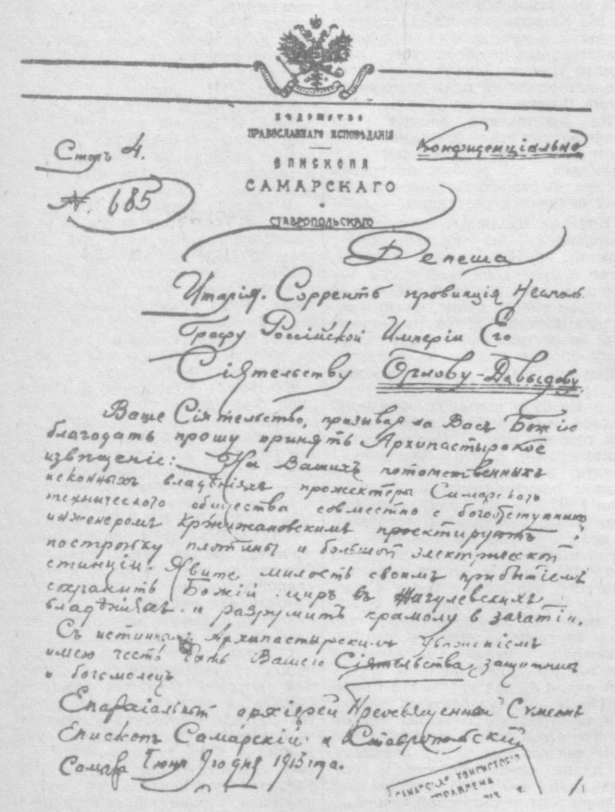 ВѢДОМСТВО
ПРАВОСЛАВНАГО ИСПОВѢДАНІЯ
ЕПИСКОПА
САМАРСКАГО
и
СТАВРОПОЛЬСКАГО
Конфиденціально
Стол 4.
№ 685
Депеша
Италія, Соррентъ провинція Неаполь
Графу Россійской Имперіи Его
Сіятельству Орлову-Давыдову
Ваше Сіятельство, призывая на Васъ Божію
благодать прошу принять Архипастырское
извѣщеніе: На Вашихъ потомственныхъ
исконныхъ владѣніяхъ прожектеры Самарского
технического общества совместно с богоотступником
инженером Кржижановским проектируютъ
постройку плотины и большой электрической
станціи. Явите милость своим прибытіемъ
сохранить Божій мир въ Жигулевскихъ
владѣніях и разрушить крамолу в зачатіи.
Съ истинным Архипастырским уваженіемъ
имею честь быть Вашего Сіятельства защитник
и богомолецъ
Епархіальный архіерей Преосвященный Симеонъ
Епископ Самарскій и Ставропольскій
Самара Іюня 9го дня 1913 года.